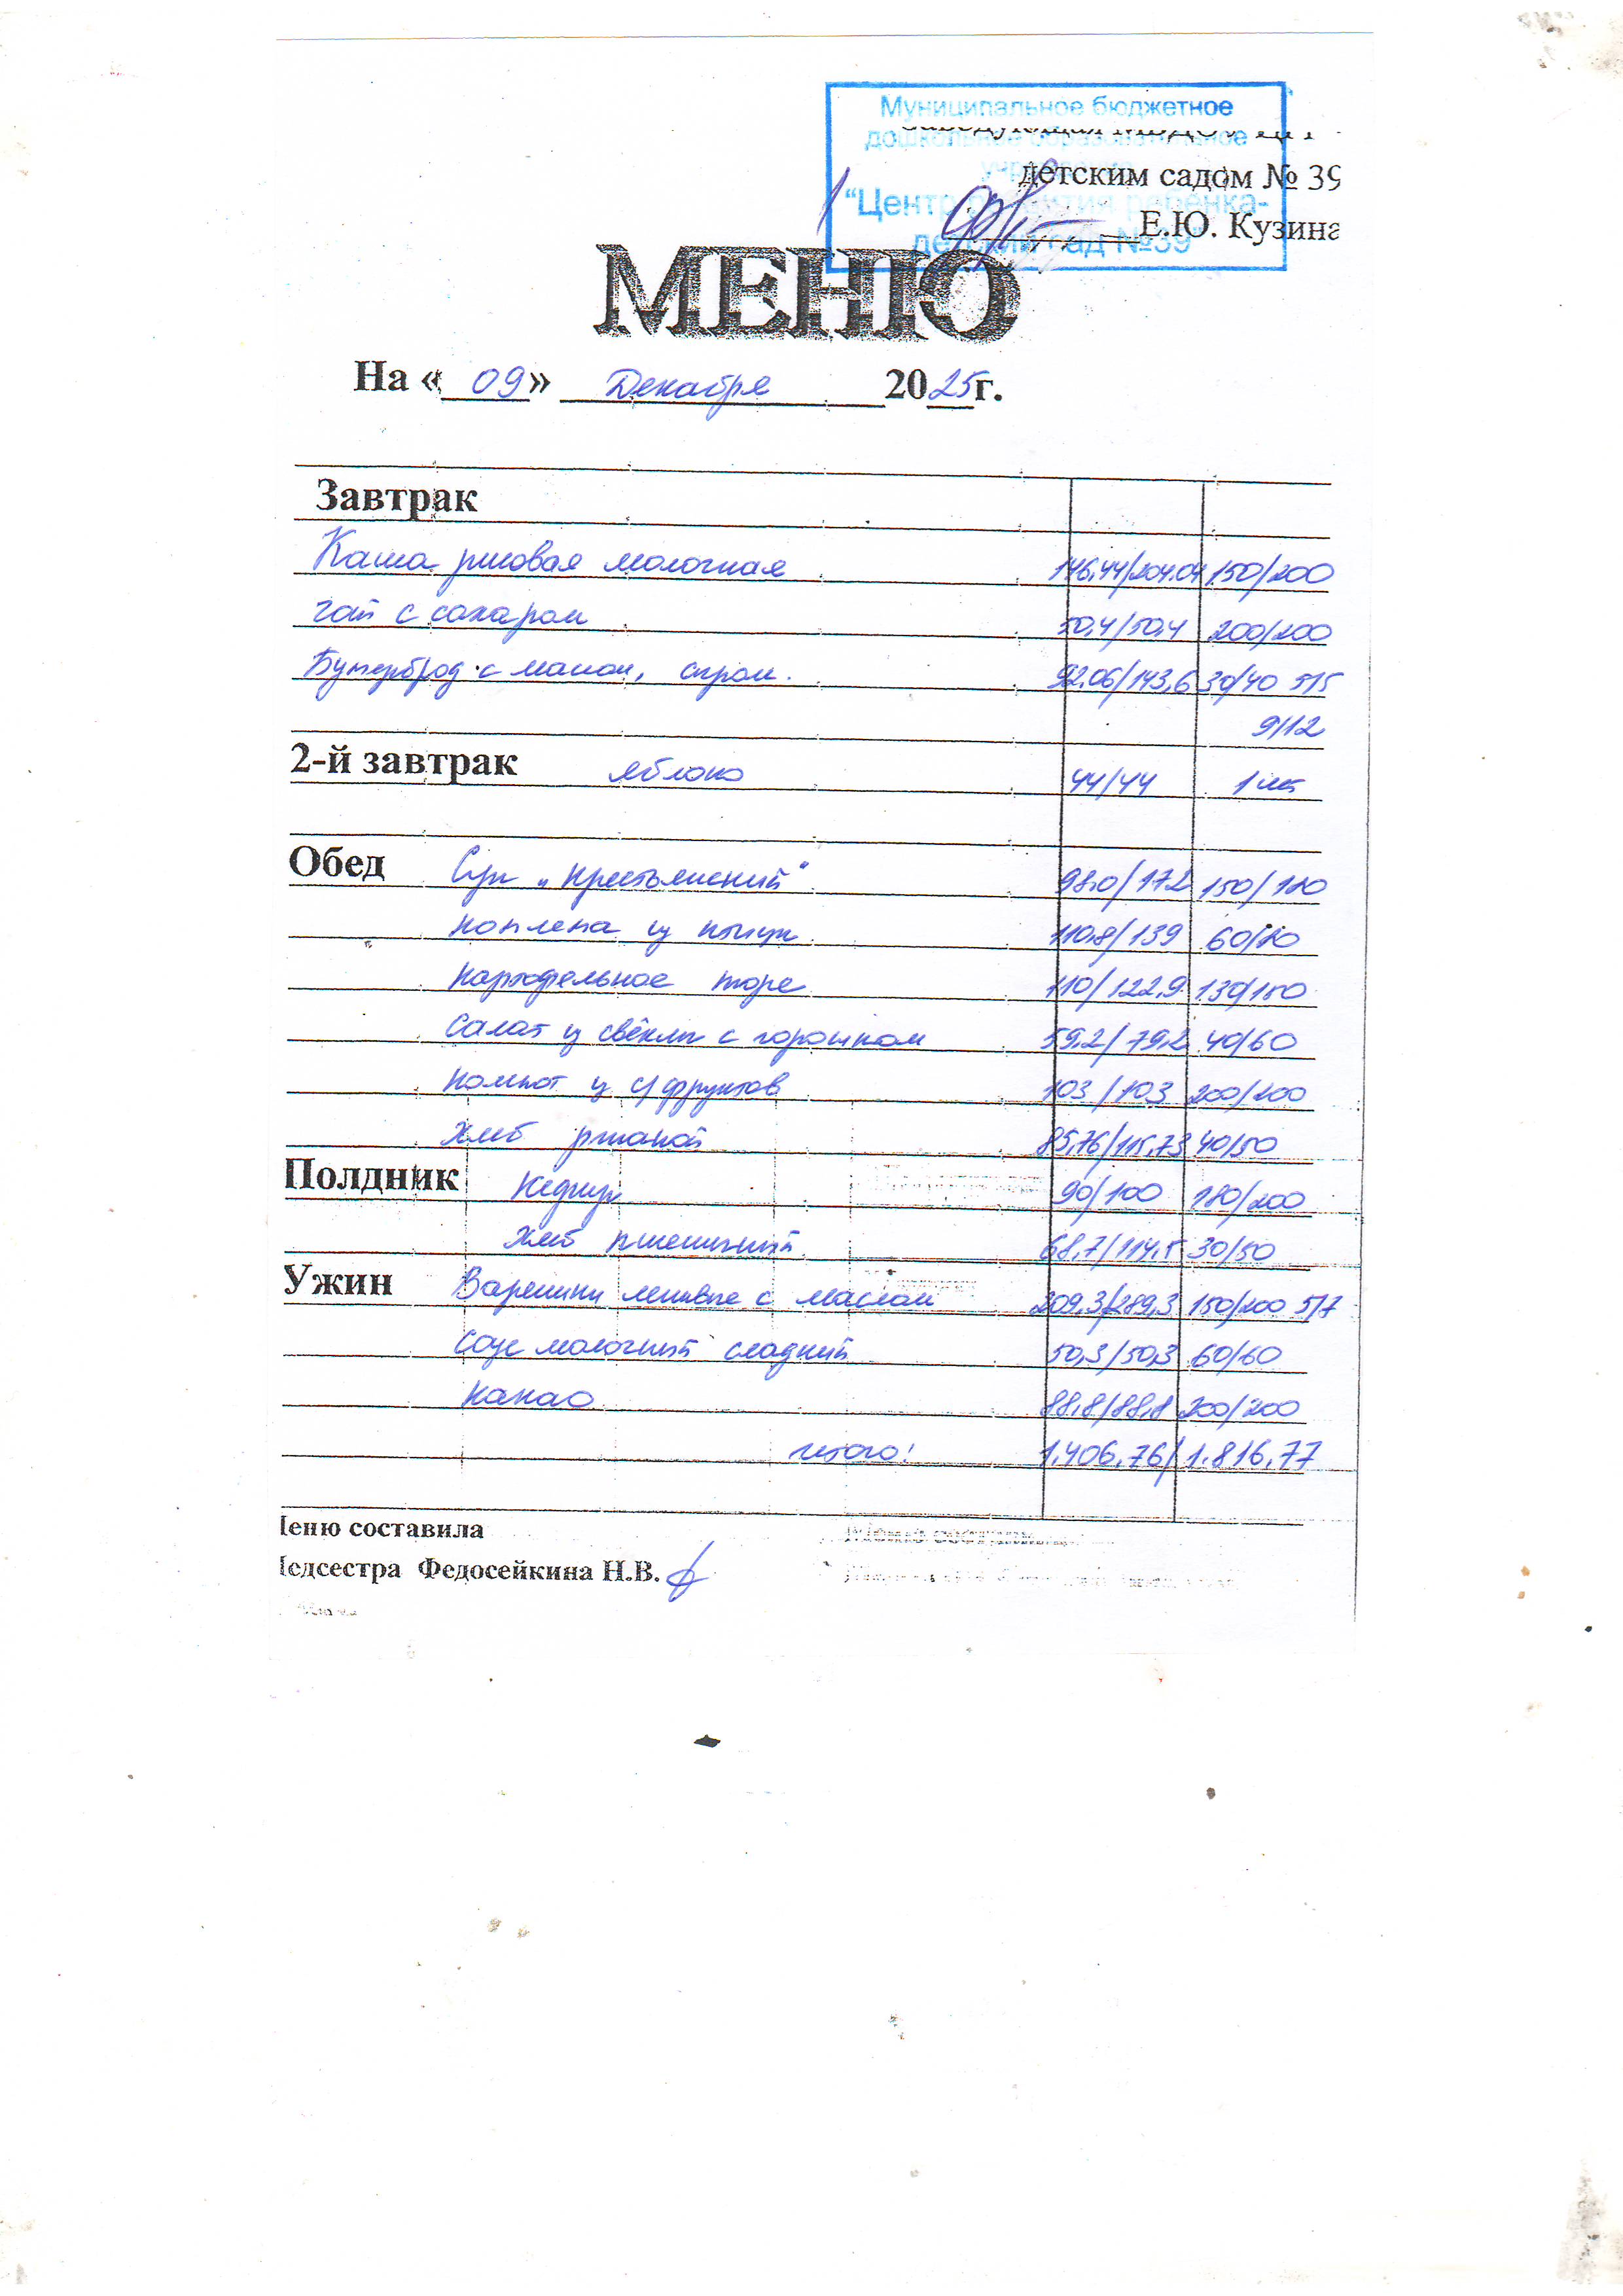 Муниципальное бюджетное
дошкольное образовательное
учреждение
"Центр развития ребенка-
детский сад №39"
детским садом № 39
Е.Ю. Кузина
МЕНЮ
На « 09 » Декабря 2025г.
Завтрак
Каша рисовая молочная 146,44/204.04 150/200
чай с сахаром 50,4/50,4 200/200
Бутерброд с маслом, сыром. 92.06/143,6 30/40 5/5
9/12
2-й завтрак яблоко 44/44 1 шт
Обед Суп „Крестьянский" 98.0/172 150/180
котлета из птицы 110,8/139 60/80
картофельное пюре 110/122,9 130/150
Салат из свёклы с горошком 59,2/79,2 40/60
компот из с/фруктов 103/103 200/200
хлеб ржаной 85,76/115,73 40/50
Полдник Кефир 90/100 180/200
хлеб пшеничный 68,7/114,5 30/50
Ужин Вареники ленивые с маслом 209,3/289,3 150/200 5/7
Соус молочный сладкий 50,3/50,3 60/60
какао 88,8/88,8 200/200
итого: 1.406,76/1.816,77
еню составила
едсестра Федосейкина Н.В.